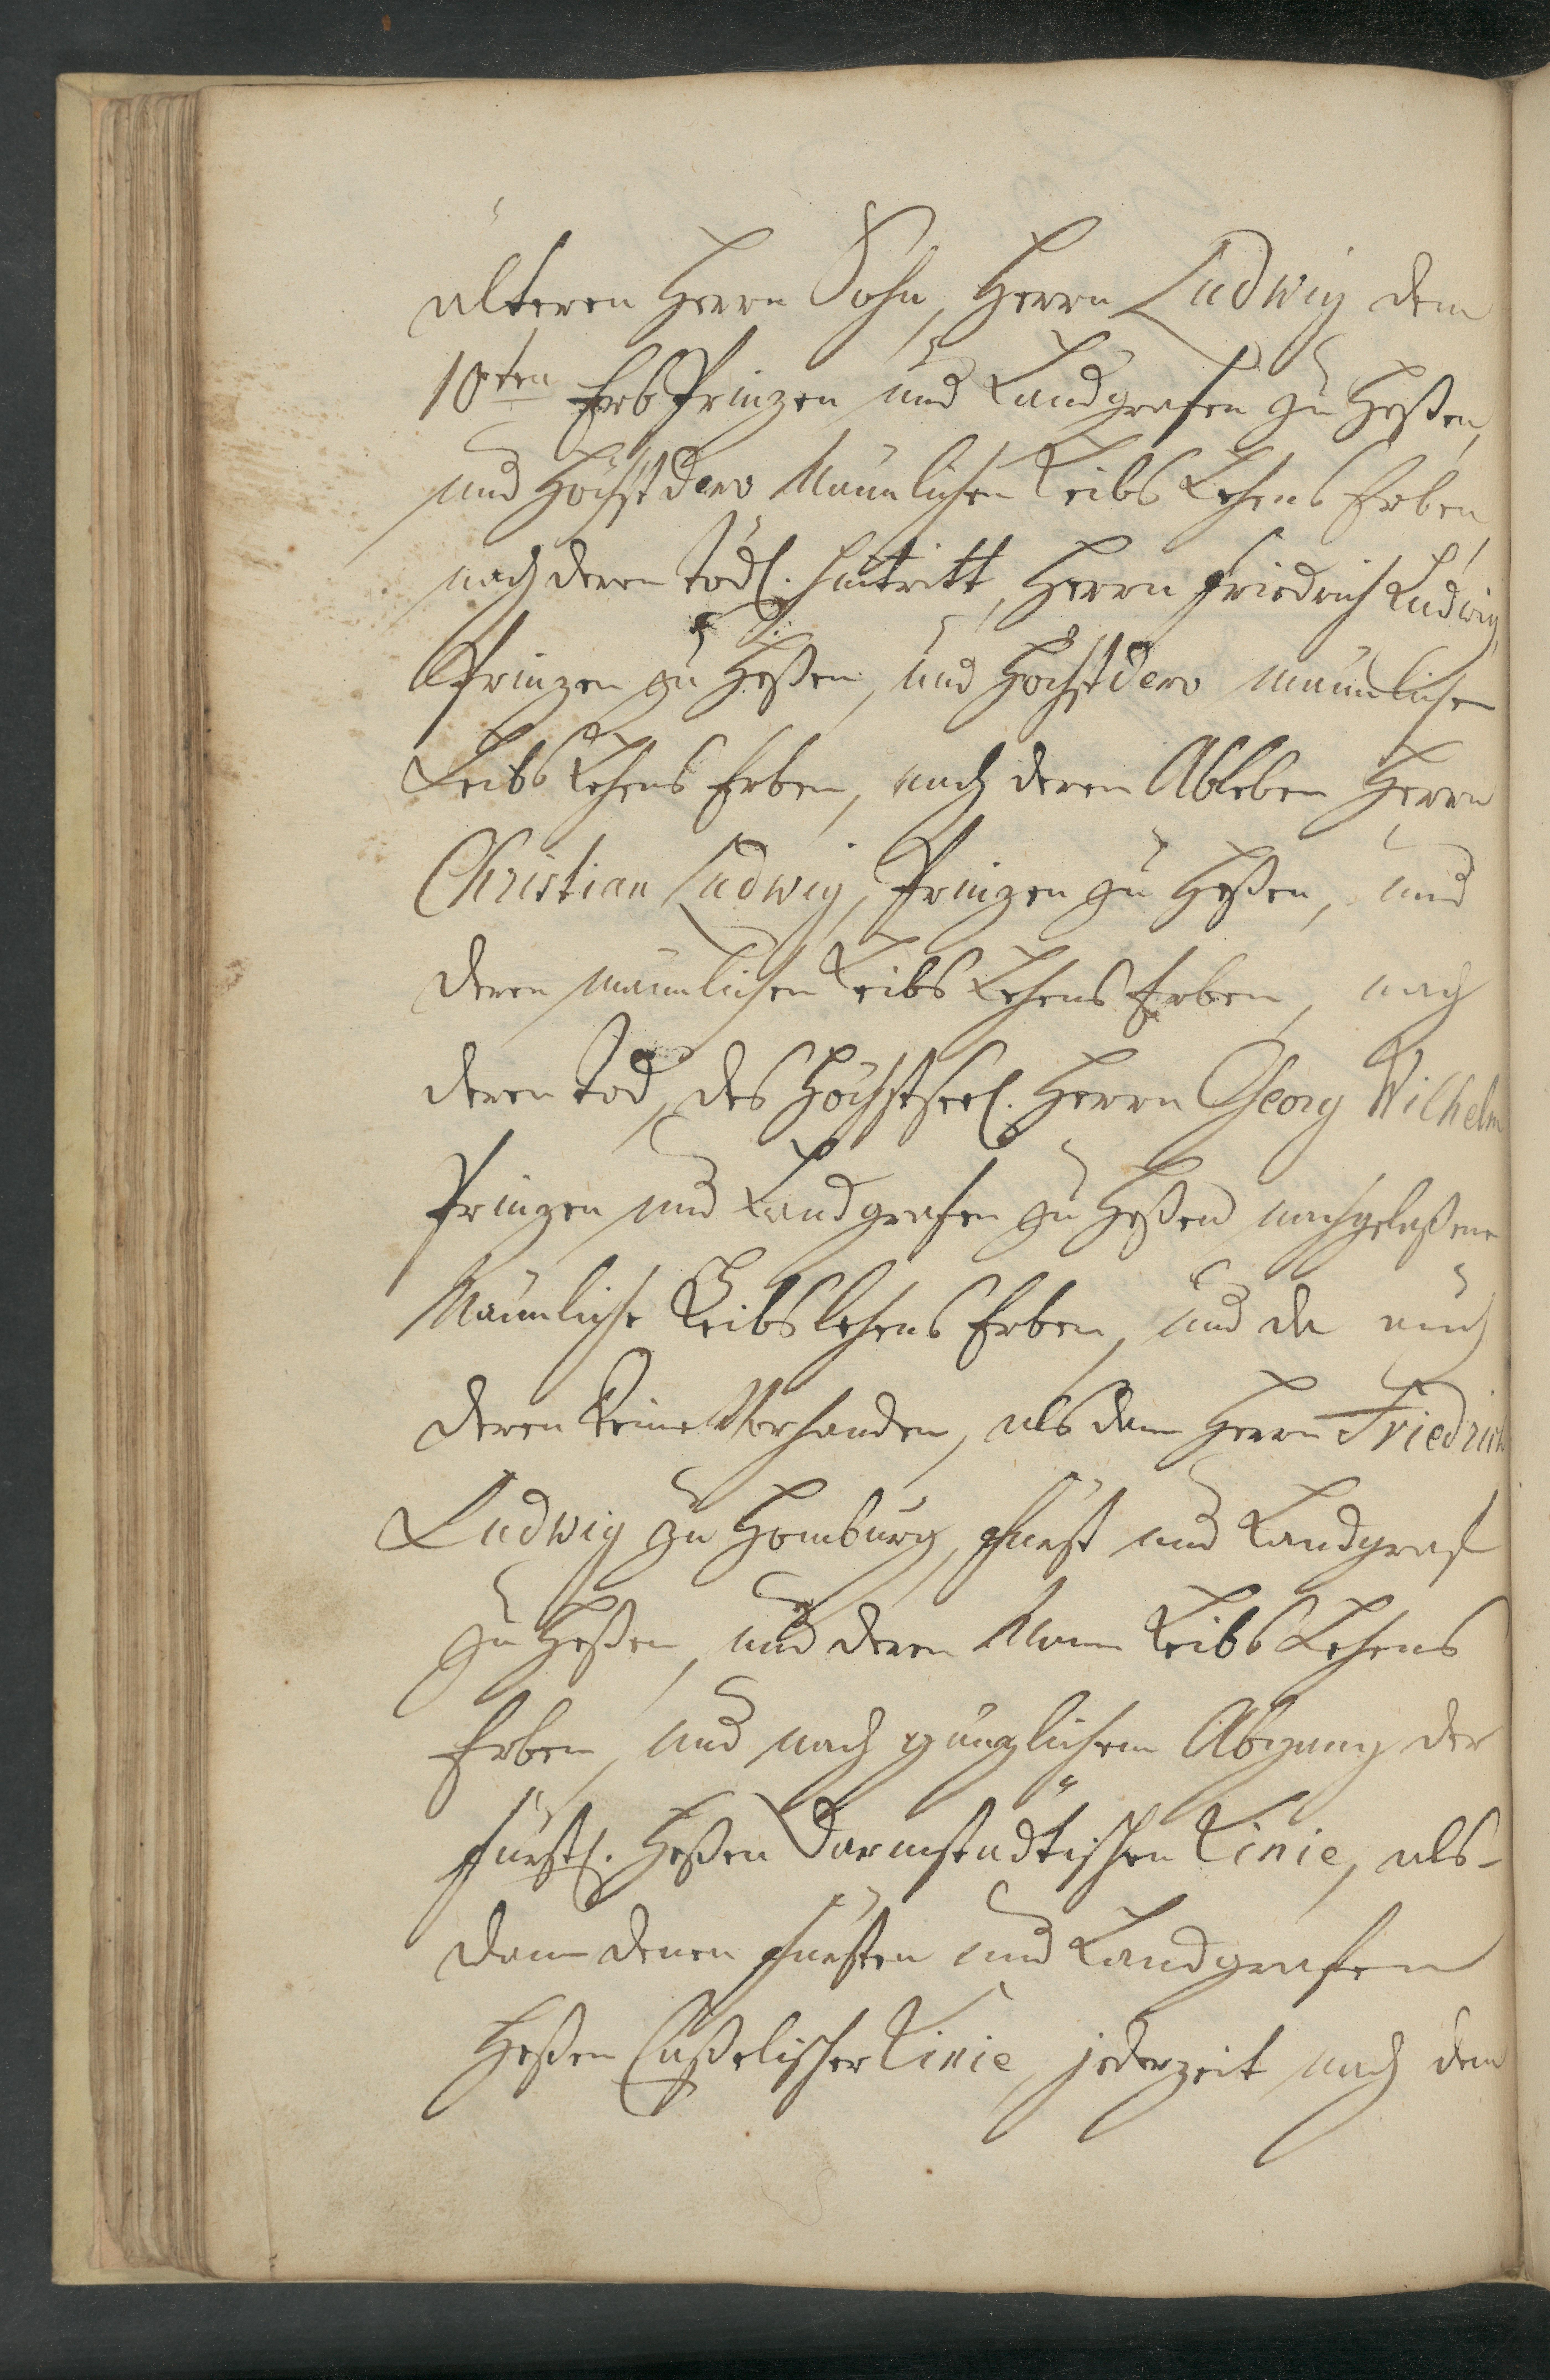 älteren Herrn Sohn, Herrn Ludwig dem
10ten ErbPrinzen und Landgrafen zu Heßen,
und Höchst Dero Männlichen Leibs Lehens Erben
nach deren tödl. Hintritt, Herrn Friedrich Ludwig,
Prinzen zu Heßen, und Höchst Dero männlichen
Leibs Lehens Erben, nach deren Ableben Herrn
Christian Ludwig, Prinzen zu Heßen, und
deren männlichen Leibs Lehens Erben, nach
deren Tod, des Höchstseel. Herrn Georg Wilhelm
Prinzen und Landgrafen zu Heßen nachgelaßene
Männliche Leibslehens Erben, und da auch
deren keine Vorhanden, als dem Herrn Friedrich
Ludwig zu Homburg, Fürst und Landgraf
zu Heßen, und deren Mann Leibs Lehens
Erben, und nach gänzlichem Abgang der
Fürstl. Heßen Darmstädtischen Linie, als-
dann denen Fürsten und Landgrafen
Heßen Caßelischer Linie, jederzeit nach dem